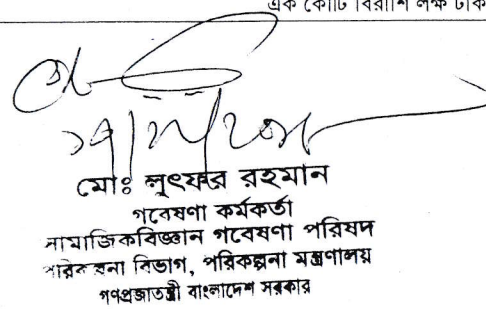 এক কোটি বিরাশি লক্ষ টাক
মোঃ লুৎফর রহমান
গবেষণা কর্মকর্তা
সামাজিকবিজ্ঞান গবেষণা পরিষদ
পরিকল্পনা বিভাগ, পরিকল্পনা মন্ত্রণালয়
গণপ্রজাতন্ত্রী বাংলাদেশ সরকার